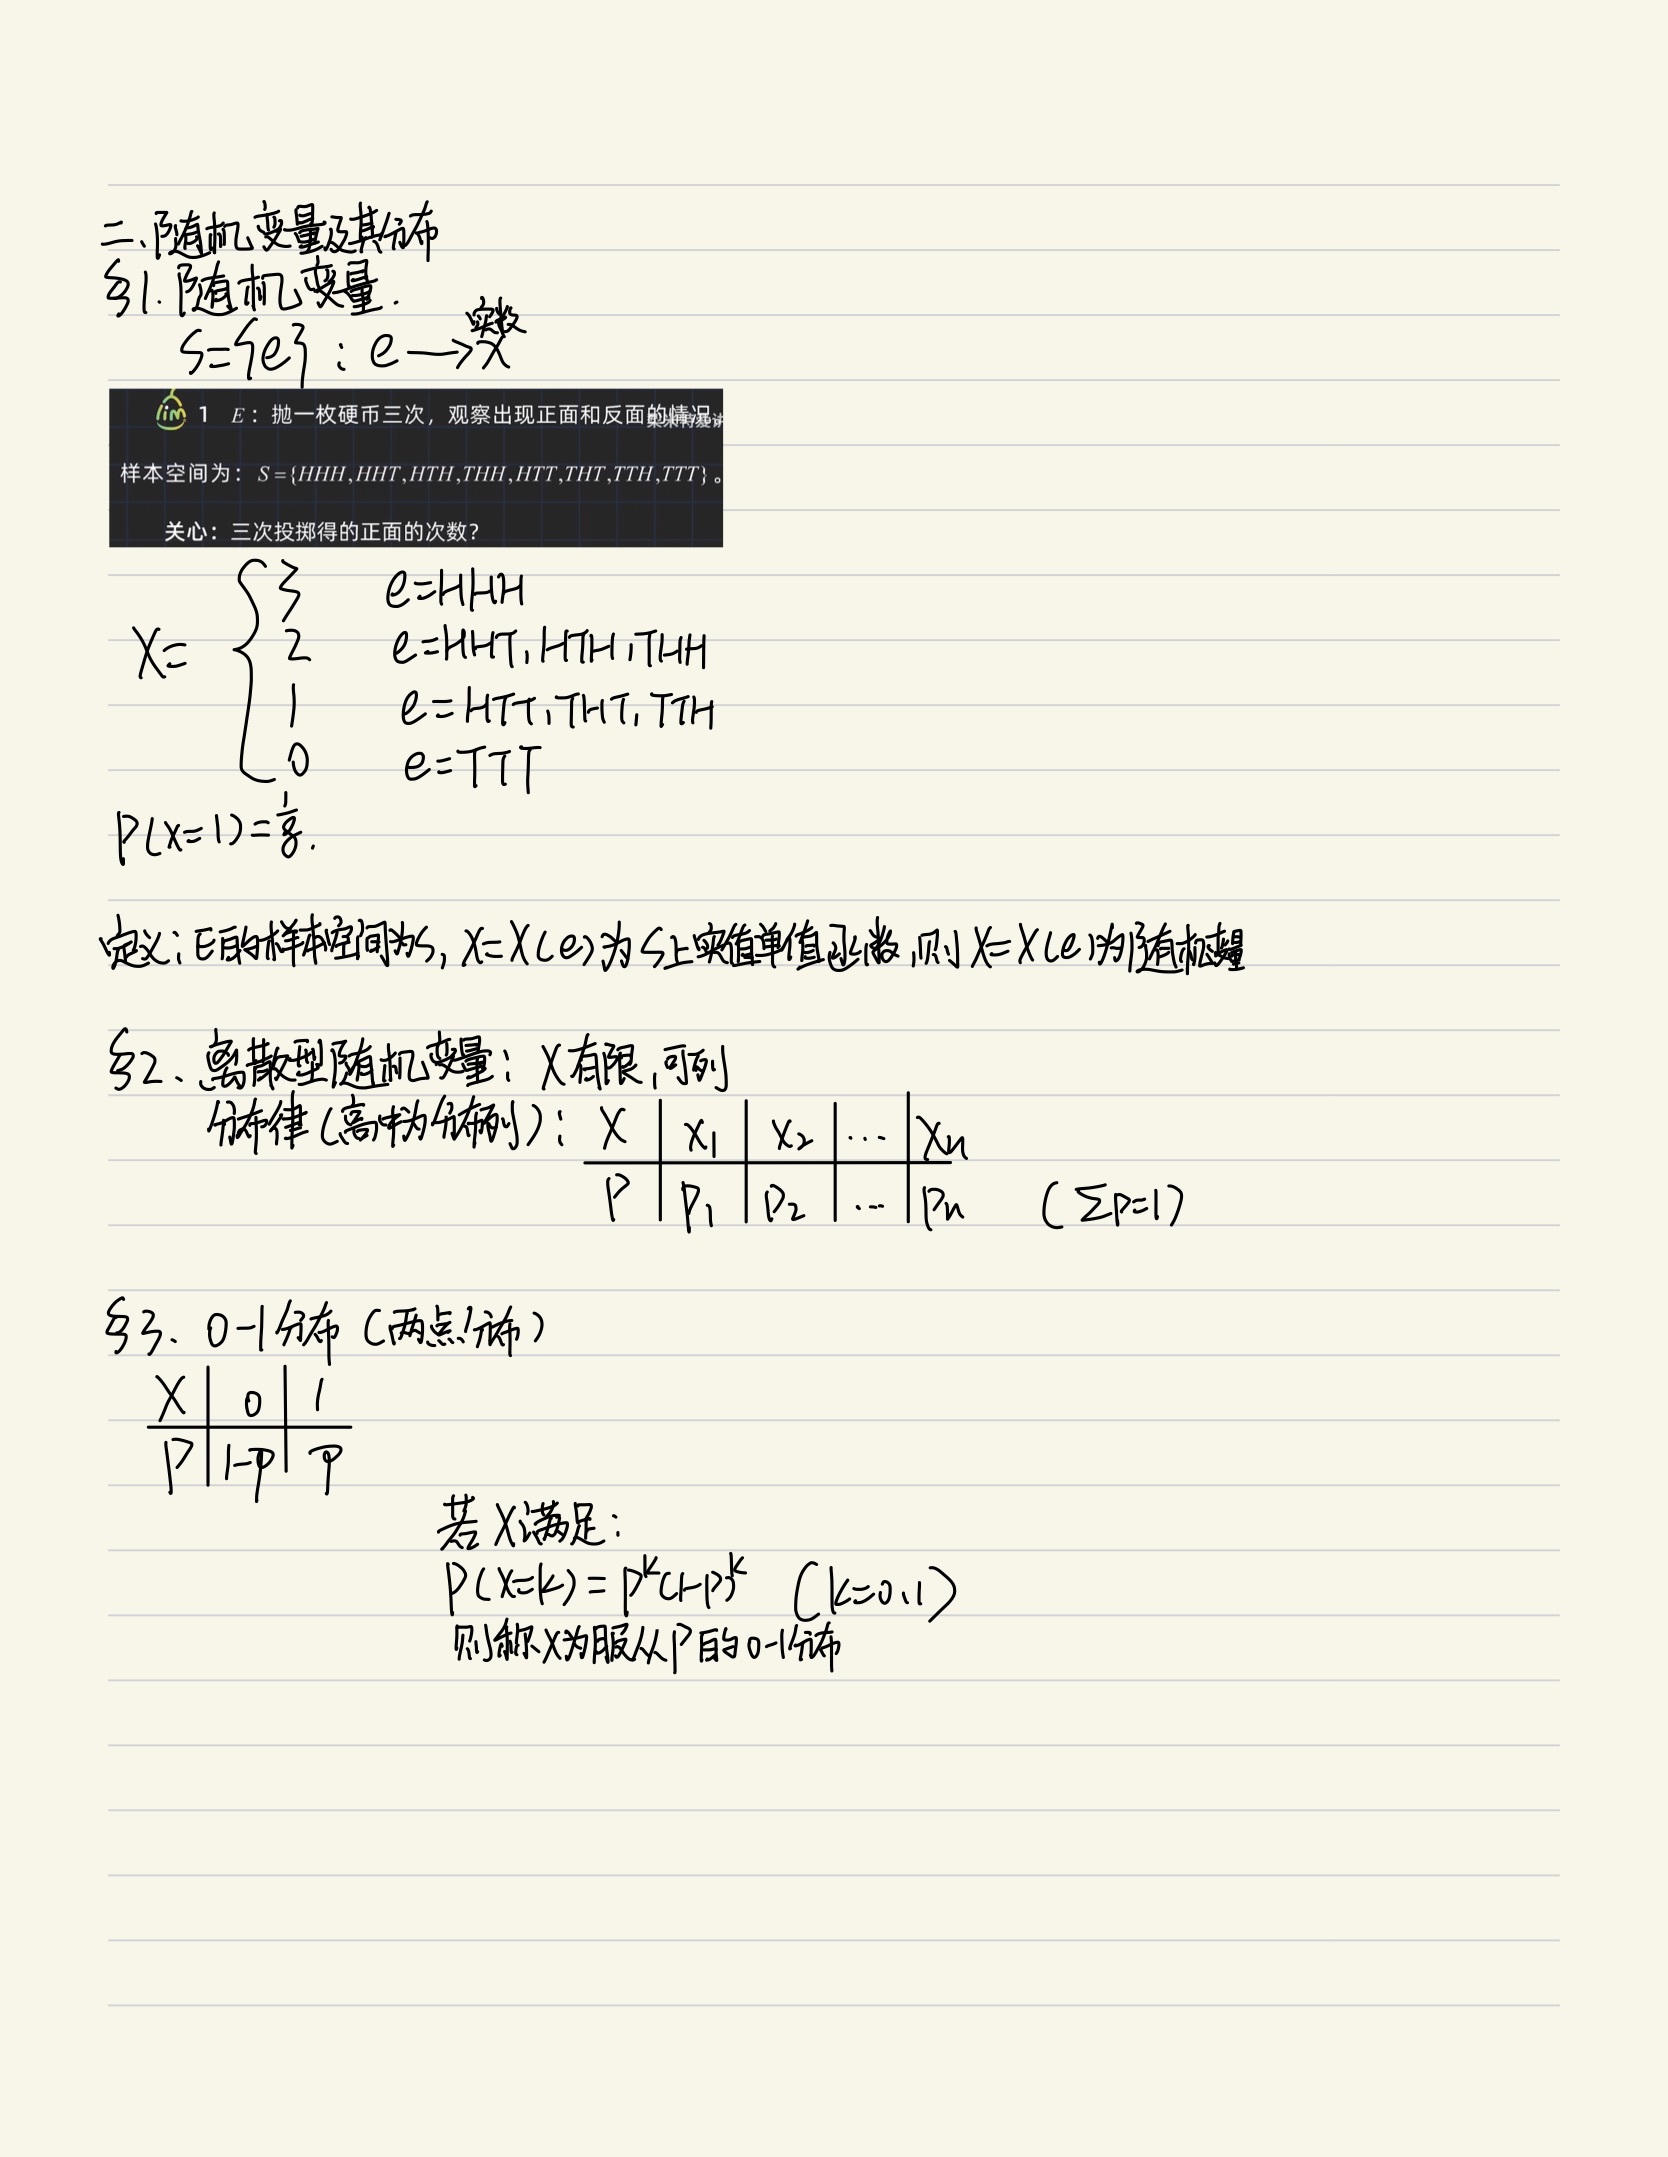 二、随机变量及其分布
§1.随机变量.
实数
S={e}：e→X
lim 1 E：抛一枚硬币三次，观察出现正面和反面的情况
样本空间为：S={HHH,HHT,HTH,THH,HTT,THT,TTH,TTT}。
关心：三次投掷得的正面的次数？
3 e=HHH
X= { 2 e=HHT,HTH,THH
1 e=HTT,THT,TTH
0 e=TTT
P(x=1)=1/8.
定义：E的样本空间为S, X=X(e)为S上实值单值函数,则X=X(e)为随机变量
§2、离散型随机变量：X有限,可列
分布律(高中为分布列)：X | x₁ | x₂ | … | xₙ
P | p₁ | p₂ | … | pₙ (Σp=1)
§3、0-1分布(两点分布)
X | 0 | 1
P | 1-p | p
若X满足：
P(X=k)=p^k(1-p)^k (k=0,1)
则称X为服从P的0-1分布